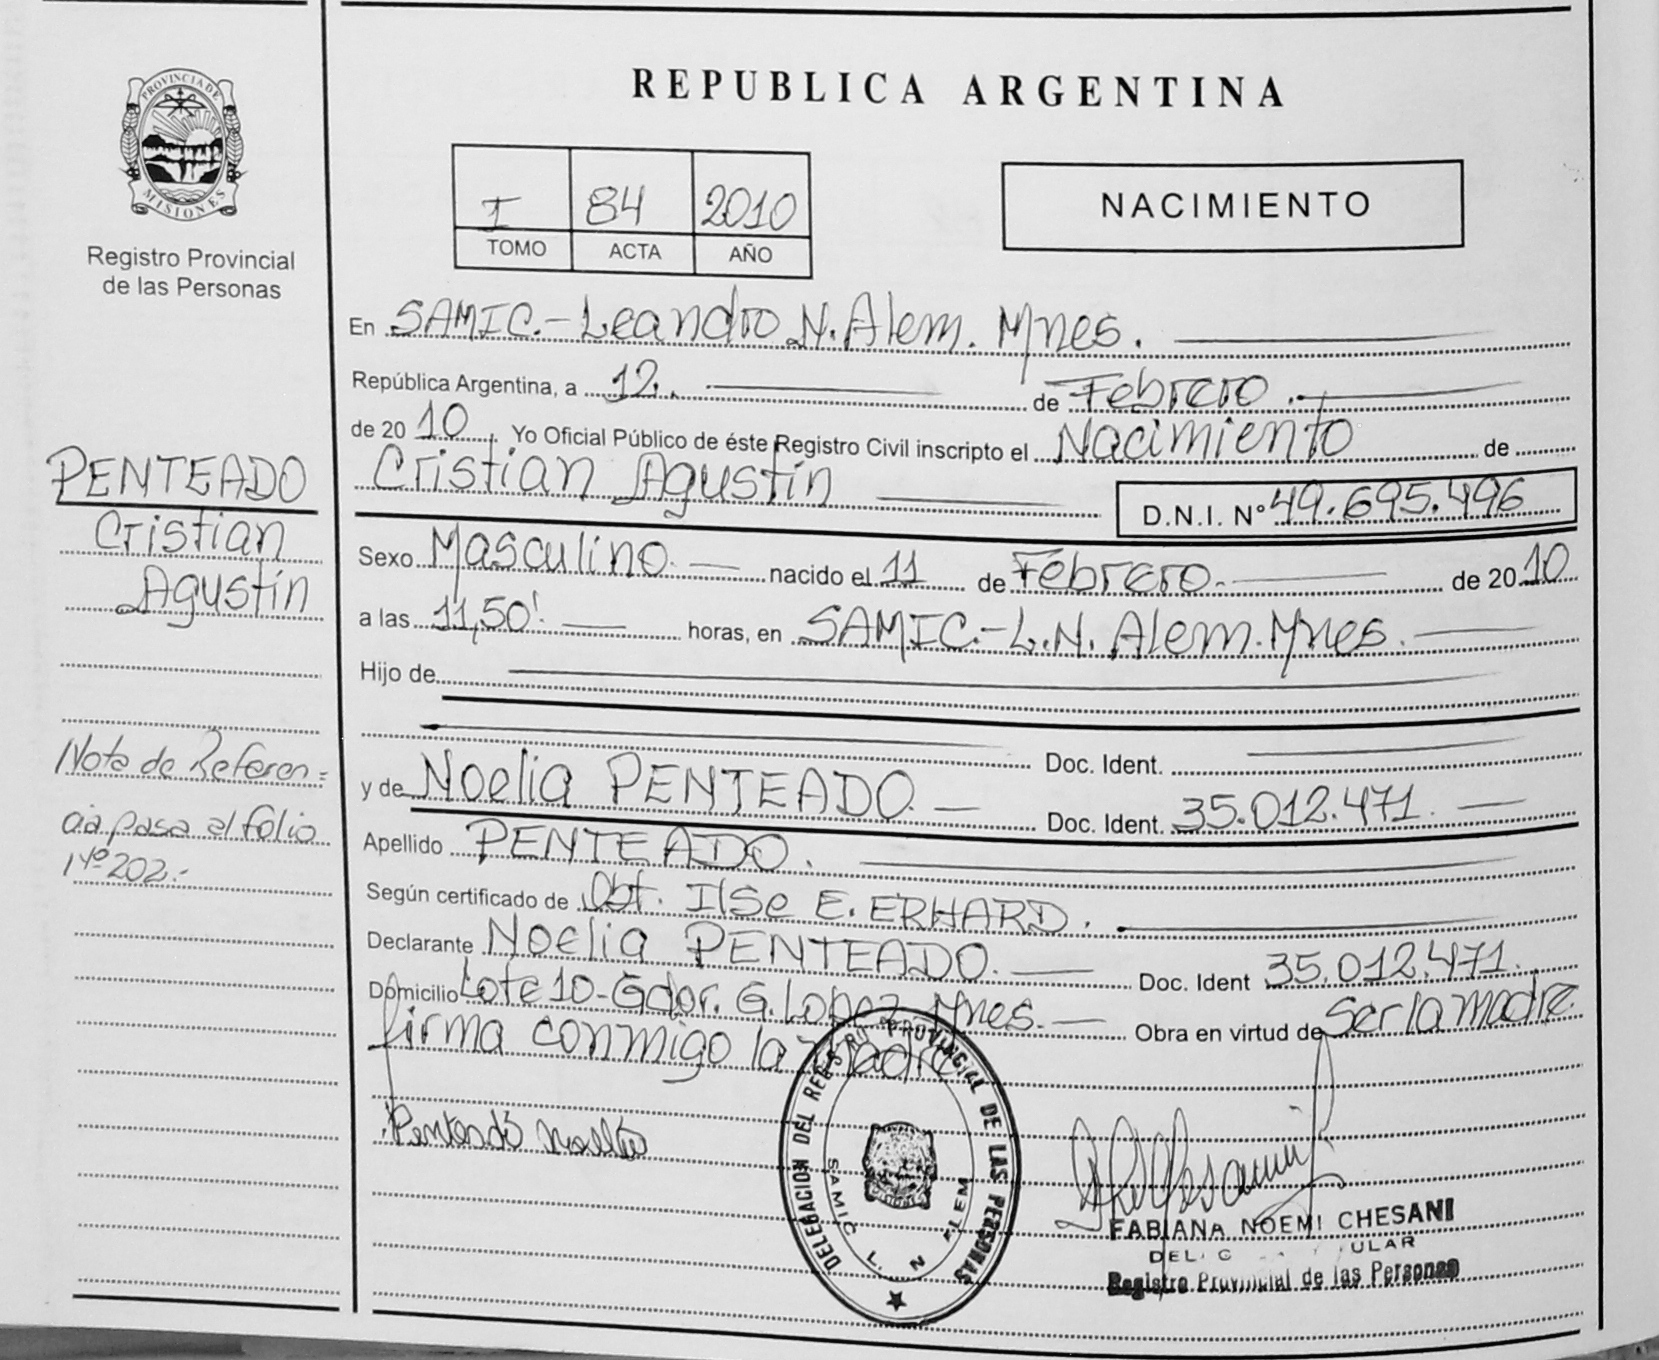 PROVINCIA DE
MISIONES
Registro Provincial
de las Personas
REPUBLICA ARGENTINA
I 84 2010
TOMO ACTA AÑO
NACIMIENTO
En SAMIC.-Leandro N. Alem. Mnes.
República Argentina, a 12. de Febrero.
de 20 10 Yo Oficial Público de éste Registro Civil inscripto el Nacimiento de
Cristian Agustín D.N.I. N° 49.695.496
PENTEADO
Cristian
Agustín
Sexo Masculino. nacido el 11 de Febrero. de 20 10
a las 11,50' horas, en SAMIC.-L.N. Alem. Mnes.
Hijo de
Doc. Ident.
y de Noelia PENTEADO. Doc. Ident. 35.012.471.
Nota de Referen=
cia pasa al folio
Nº 202.-
Apellido PENTEADO.
Según certificado de Obt. Ilse E. ERHARD.
Declarante Noelia PENTEADO. Doc. Ident 35.012.471.
Domicilio Lote 10-Gdor. G. Lopez-Mnes. Obra en virtud de Ser la madre
firma conmigo la Madre
Penteado Noelia
DELEGACION DEL REGISTRO PROVINCIAL DE LAS PERSONAS
SAMIC L. N ALEM
FABIANA NOEMI CHESANI
Registro Provincial de las Personas